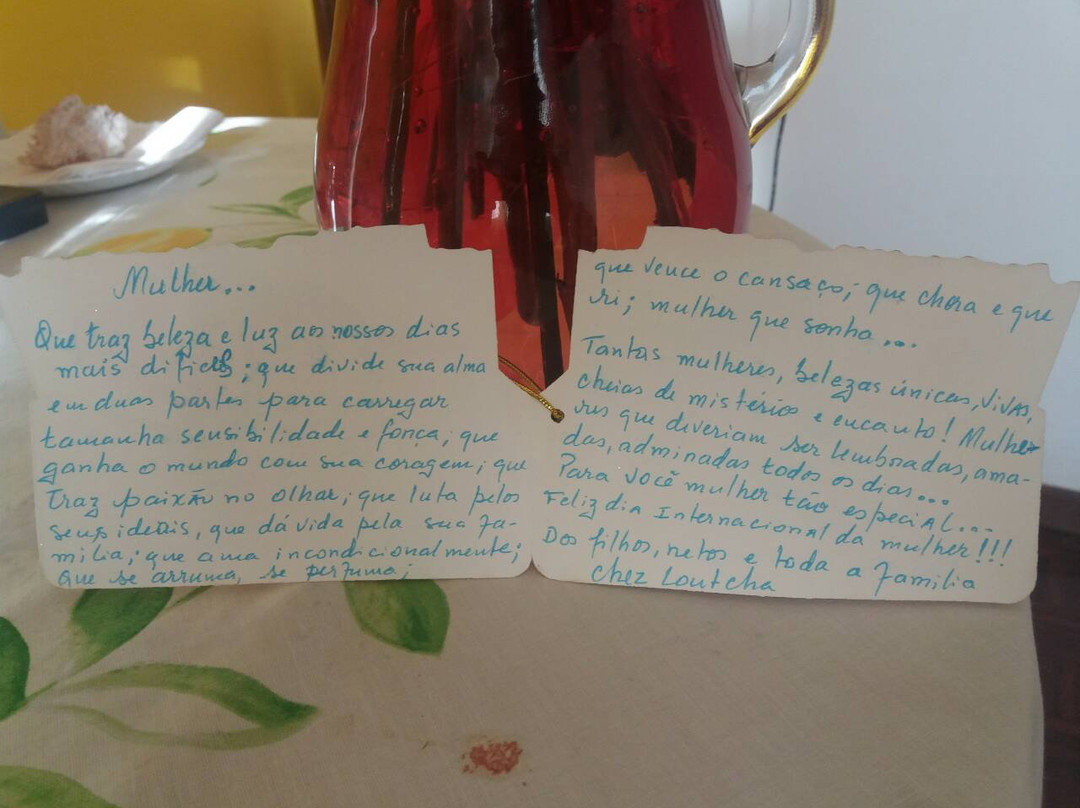 Mulher...
Que traz beleza e luz aos nossos dias
mais difíceis; que divide sua alma
em duas partes para carregar
tamanha sensibilidade e força; que
ganha o mundo com sua coragem; que
traz paixão no olhar; que luta pelos
seus ideais, que dá vida pela sua fa-
milia; que ama incondicionalmente;
que se arruma, se perfuma;
que vence o cansaço; que chora e que
ri; mulher que sonha...
Tantas mulheres, belezas únicas, vivas,
cheias de mistérios e encanto! Mulhe-
res que deveriam ser lembradas, ama-
das, adminadas todos os dias...
Para você mulher tão especial...
Feliz dia Internacional da mulher!!!
Dos filhos, netos e toda a familia
Chez Loutcha